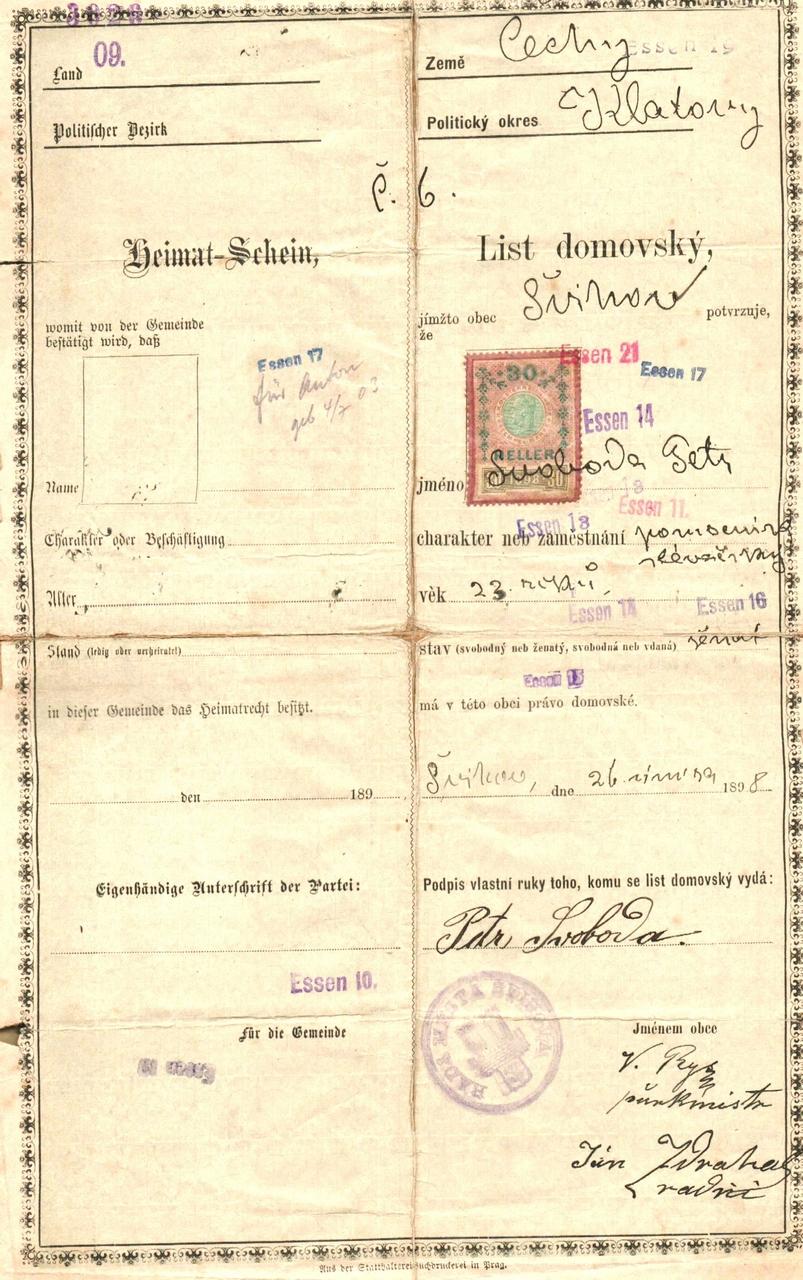 09.
Land
Politischer Bezirk
Země Čechy
Essen 19
Politický okres Klatovy
Č. 6.
Heimat-Schein,
womit von der Gemeinde
bestätigt wird, daß
Essen 17
für Anton
geb 4/7 03
Name
Charakter oder Beschäftigung
Alter
Stand (ledig oder verheiratet)
in dieser Gemeinde das Heimatrecht besitzt.
den 189
Eigenhändige Unterschrift der Partei:
Essen 10.
Für die Gemeinde
List domovský,
jímžto obec Švihov potvrzuje,
že
Essen 21
Essen 17
30
Essen 14
HELLER
1898
jméno Svoboda Petr
Essen 13
Essen 11.
Essen 13
charakter neb zaměstnání
věk 23 roků,
Essen 14
Essen 16
stav (svobodný neb ženatý, svobodná neb vdaná) ženat
Essen 15
má v této obci právo domovské.
Švihov, dne 26 února 1898
Podpis vlastní ruky toho, komu se list domovský vydá:
Petr Svoboda.
RADA MĚSTA ŠVIHOVA
Jménem obce
V. Ryz
purkmistr
Jan
radní
Aus der Statthalterei-Buchdruckerei in Prag.